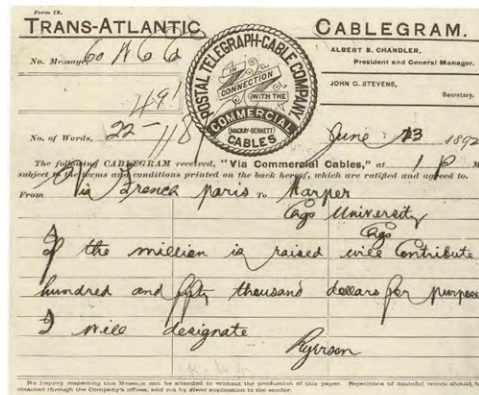 Form 72.
TRANS-ATLANTIC CABLEGRAM.
ALBERT B. CHANDLER,
President and General Manager.
JOHN O. STEVENS,
Secretary.
POSTAL TELEGRAPH-CABLE COMPANY
IN CONNECTION WITH THE
COMMERCIAL
(MACKAY-BENNETT)
CABLES
No. Message 60 N 6 6
491
No. of Words, 22- 118 June 23 1892
The following CABLEGRAM received, "Via Commercial Cables," at 1 P M
subject to the terms and conditions printed on the back hereof, which are ratified and agreed to.
From Via French paris To Harper
Cago University
Cago
If the million is raised will Contribute
hundred and fifty thousand dollars for purpose
I will designate
Ryerson
No Inquiry respecting this Message can be attended to without the production of this paper. Repetitions of doubtful words should, b
obtained through the Company's offices, and not by direct application to the sender.